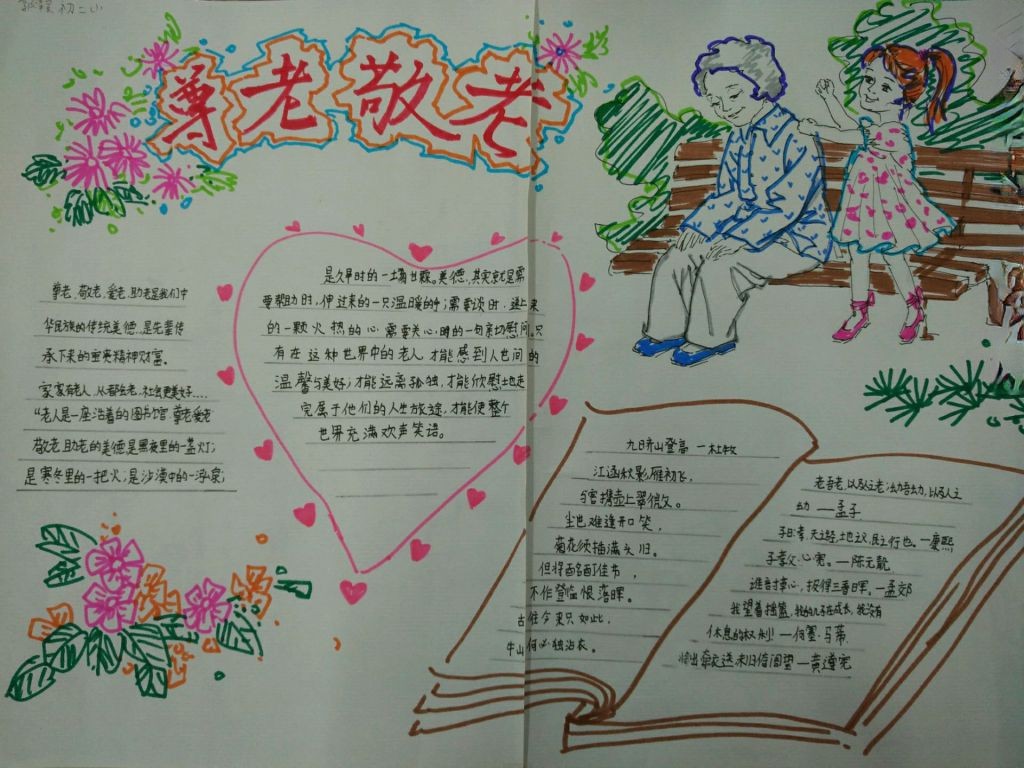 初二
尊老敬老
尊老、敬老、爱老、助老是我们中
华民族的传统美德,是先辈传
承下来的宝贵精神财富。
家家有老人,人人都会老,社会更美好....
“老人是一座活着的图书馆 尊老爱老
敬老助老的美德是黑夜里的一盏灯;
是寒冬里的一把火;是沙漠中的一泓泉;
是久旱时的一场甘霖。美德,其实就是需
要帮助时,伸过来的一只温暖的手;需要谈时,送上来
的一颗火热的心 需要关心时的一句亲切慰问,只
有在这种世界中的老人,才能感到人世间的
温馨与美好,才能远离孤独,才能欣慰地走
完属于他们的人生旅途,才能使整个
世界充满欢声笑语。
九日齐山登高 一杜牧
江涵秋影雁初飞,
与客携壶上翠微。
尘世难逢开口笑,
菊花须插满头归。
但将酩酊佳节,
不作登临恨落晖。
古往今来只如此,
牛山何必独沾衣。
老吾老,以及人之老;幼吾幼,以及人之
幼 —孟子
子曰:孝,天之经,地之义,民之行也。—康熙
子孝父心宽。—陈元靓
谁言寸草心,报得三春晖。—孟郊
我望着摇篮,我的儿子在成长,我没有
休息的权利!—何塞·马蒂
将出牵衣送未归倚闾望—黄遵宪